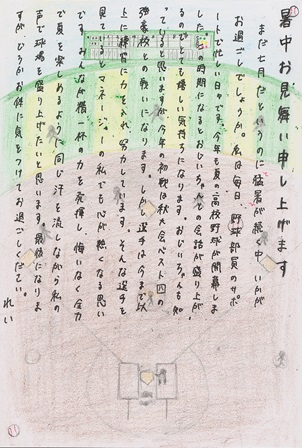 暑中お見舞い申し上げます
まだ七月だというのに猛暑が続く中、いかが
お過ごしでしょうか。私は毎日、野球部員のサポ
ートで忙しい日々です。今年も夏の高校野球が開幕しま
したね。この時期になるとおじいちゃんとの会話が盛り上が
るのがとても嬉しい気持ちになります。おじいちゃんも知
っていると思いますが今年の初戦は秋大会ベスト四の
強豪校との戦いになります。しかし選手は今まで以
上に練習に力を入れ、努力しています。そんな選手を
見ているとマネージャーの私でも心が熱くなる思い
です。みんなが精一杯の力を発揮し、悔いなく全力
で夏を楽しめるように同じ汗を流しながら私の
声で球場を盛り上げたいと思います。最後になりま
すが、どうかお体に気をつけてお過ごしください。
れい